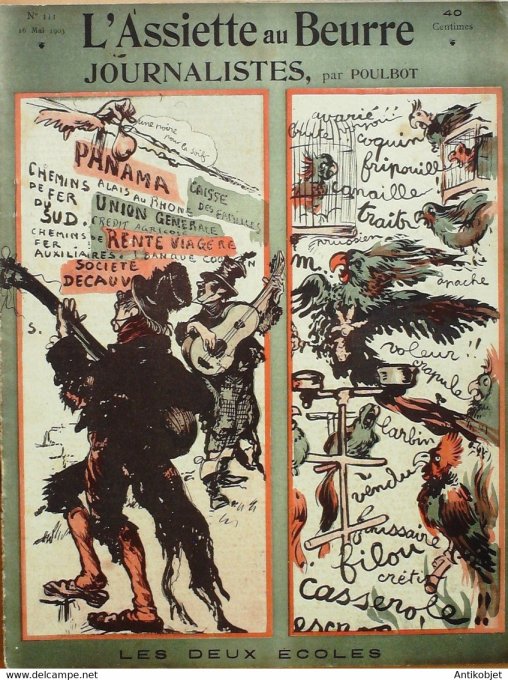 Nº 111
16 Mai 1903
L'Assiette au Beurre
40
Centimes
JOURNALISTES, par POULBOT
une poire
pour la soif
PANAMA
CHEMINS
DE FER
DU
SUD.
CHEMINS DE
FER
AUXILIAIRES.
ALAIS AU RHONE
UNION GENERALE
CREDIT AGRICOLE
RENTE VIAGERE
BANQUE
SOCIETE
DECAUV
CAISSE
DES FAMILLES
S.
avarié!!
coquin
fripouille
canaille!
traitr
prussien
m.
apache
voleur!!
crapule
larbin
vendu
filou
crétin
casserole!!
LES DEUX ÉCOLES
www.antikobjet.fr
Antikobjet